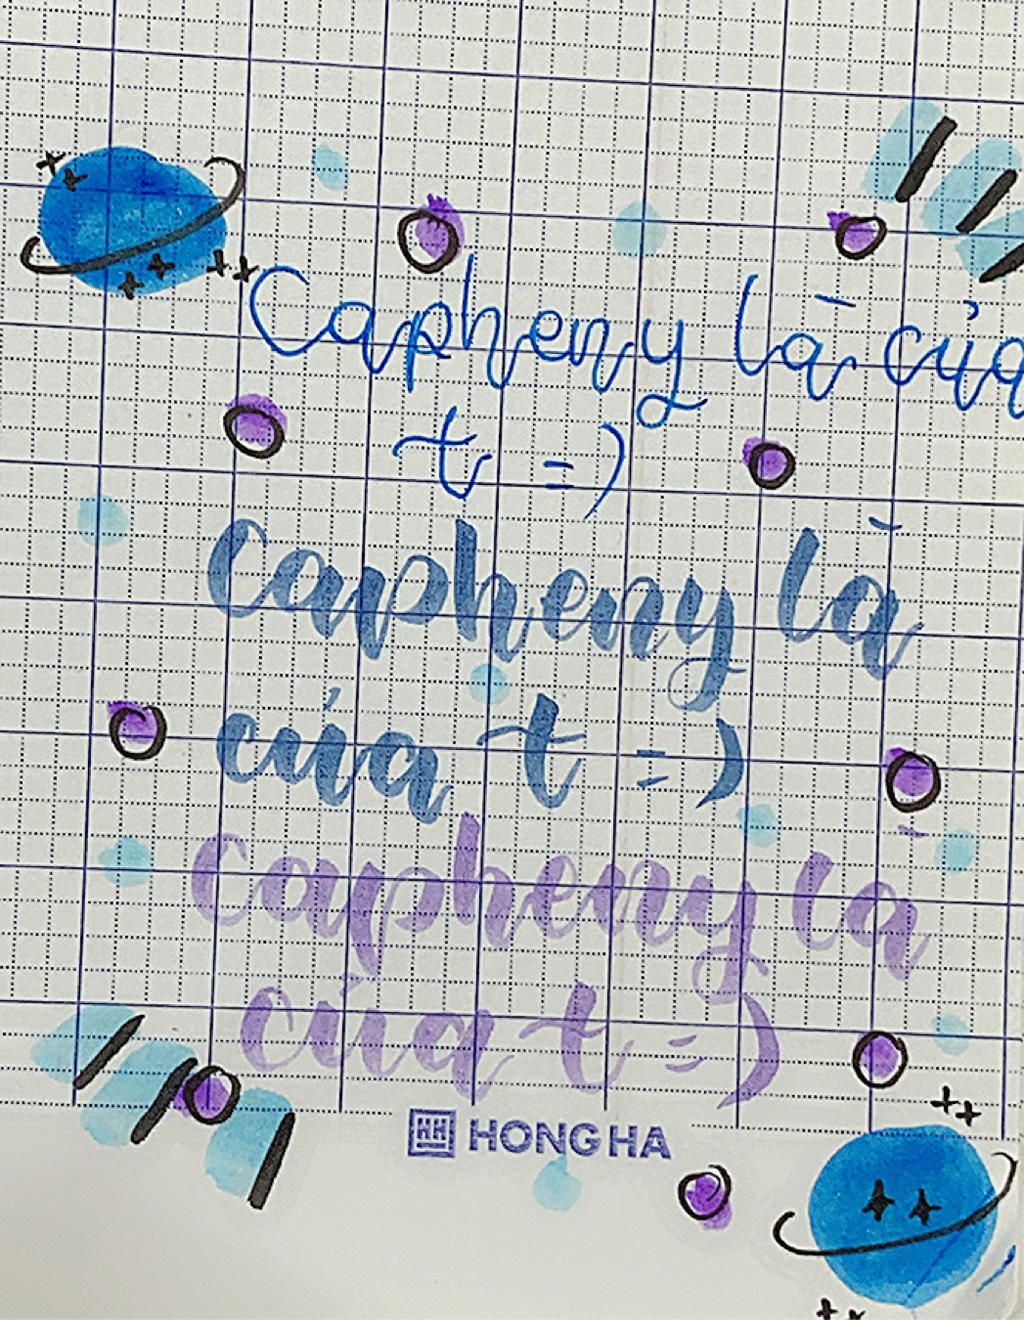 Capheny là của
t =)
Capheny là
của t =)
Capheny là
của t =)
HH HONG HA